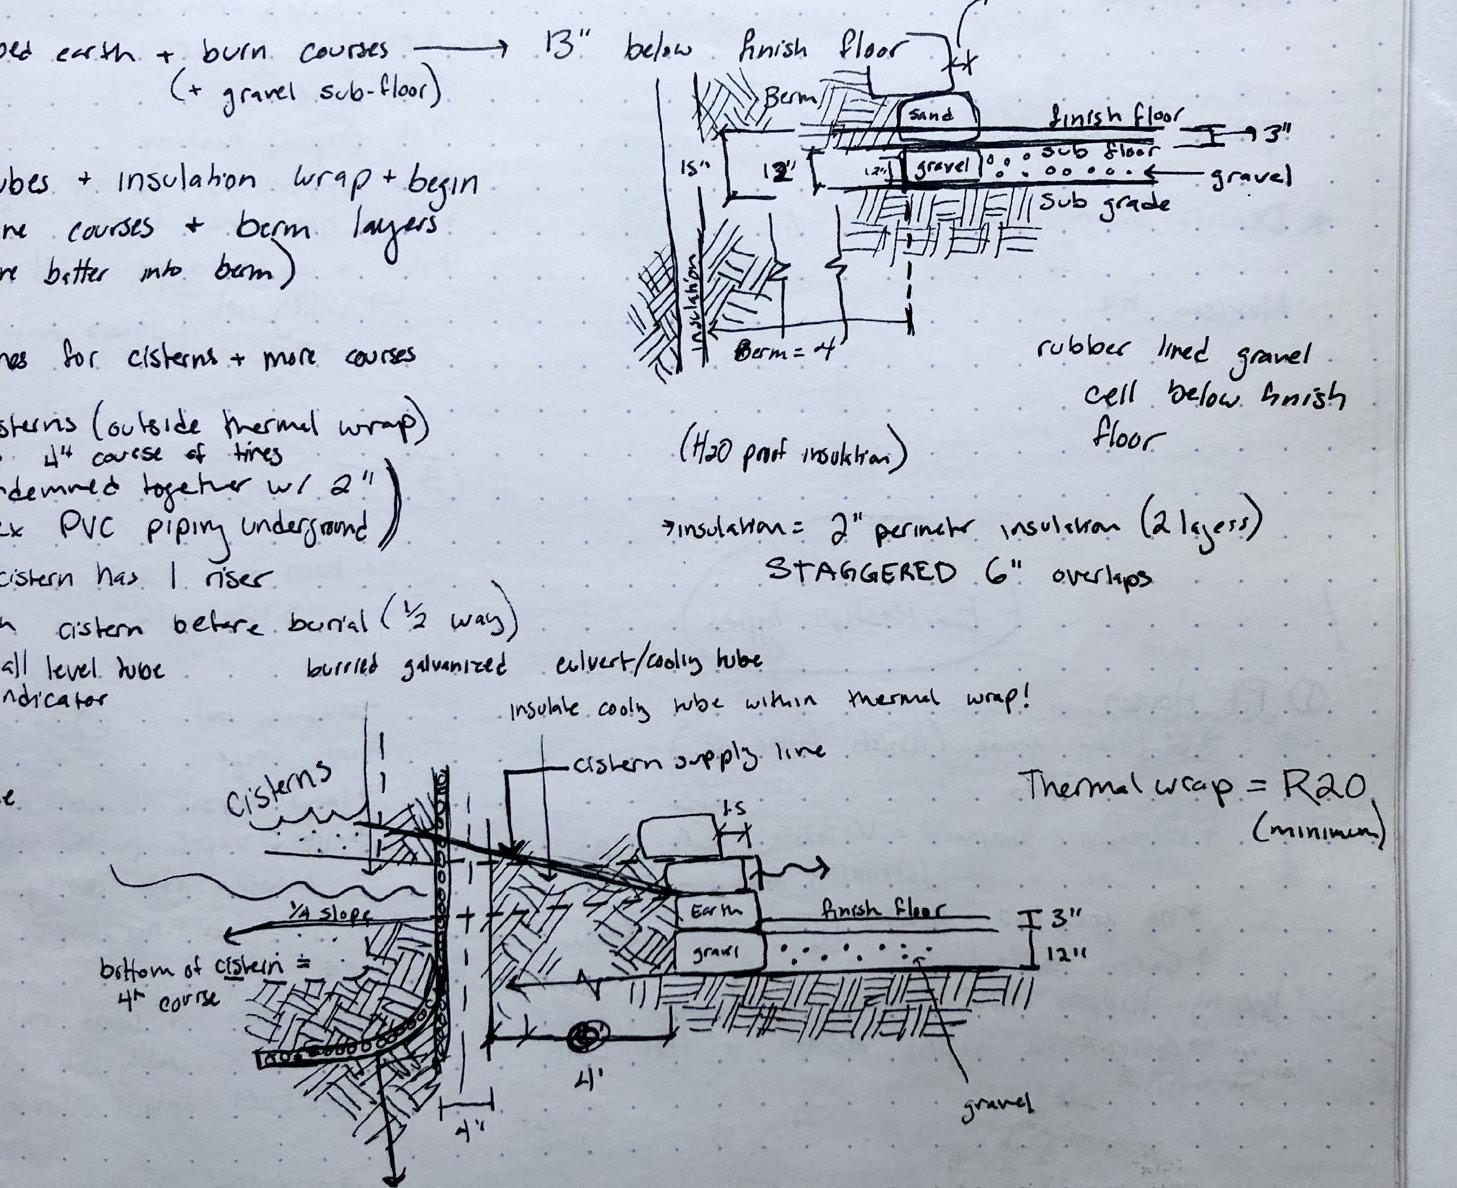 earth + burn courses → 13" below finish floor
(+ gravel sub-floor)
Berm
sand
finish floor
3"
15"
12"
12"
gravel
sub floor
gravel
sub grade
insulation
Berm = 4'
+ insulation wrap + begin
courses + berm layers
batter into berm)
for cisterns + more courses
(outside thermal wrap)
4th course of tires
together w/ 2"
PVC piping underground)
cistern has 1 riser
cistern before burial (1/2 way)
level tube
rubber lined gravel
cell below finish
floor
(H2O proof insulation)
→ insulation = 2" perimeter insulation (2 layers)
STAGGERED 6" overlaps
burried galvanized culvert/cooling tube
insulate cooling tube within thermal wrap!
cistern supply line
cisterns
Thermal wrap = R20
(minimum)
1.5
1/4 slope
Earth
finish floor
3"
gravel
12"
bottom of cistern =
4th course
4'
4"
gravel